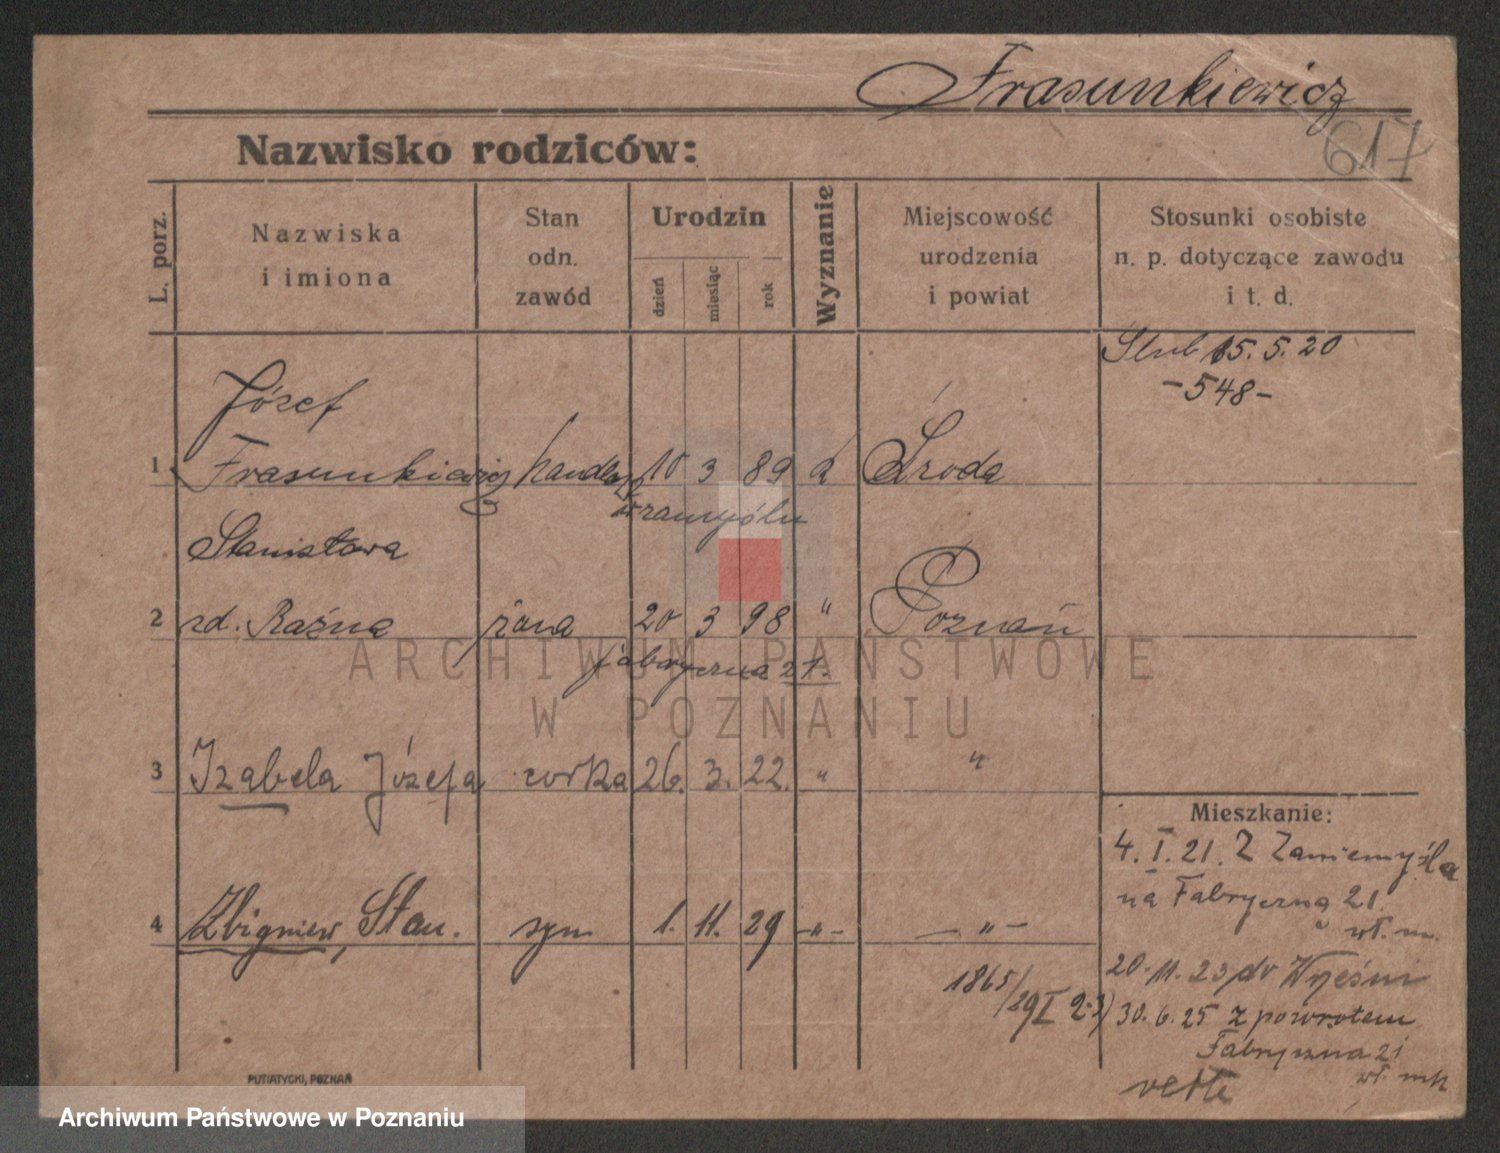 Frasunkiewicz
617
Nazwisko rodziców:
L. porz.
Nazwiska
i imiona
Stan
odn.
zawód
Urodzin
dzień
miesiąc
rok
Wyznanie
Miejscowość
urodzenia
i powiat
Stosunki osobiste
n. p. dotyczące zawodu
i t. d.
Ślub 15. 5. 20
- 548 -
Józef
1 Frasunkiewicz 10 3 89 Środa
Stanisława
2 zd. Raźna żona 20 3 98 " Poznań
Fabryczna 21.
3 Izabela Józefa corka 26. 3. 22. " "
Mieszkanie:
4. I. 21. Z Zaniemyśla
na Fabryczną 21.
wł. m.
4 Zbigniew, Stan. syn 1. 11. 29 -"- -"-
20. 11. 23 do Wrześni
1865/29 I
30. 6. 25 z powrotem
Fabryczna 21
wł.
PUTIATYCKI, POZNAŃ
ARCHIWUM PAŃSTWOWE
W POZNANIU
Archiwum Państwowe w Poznaniu